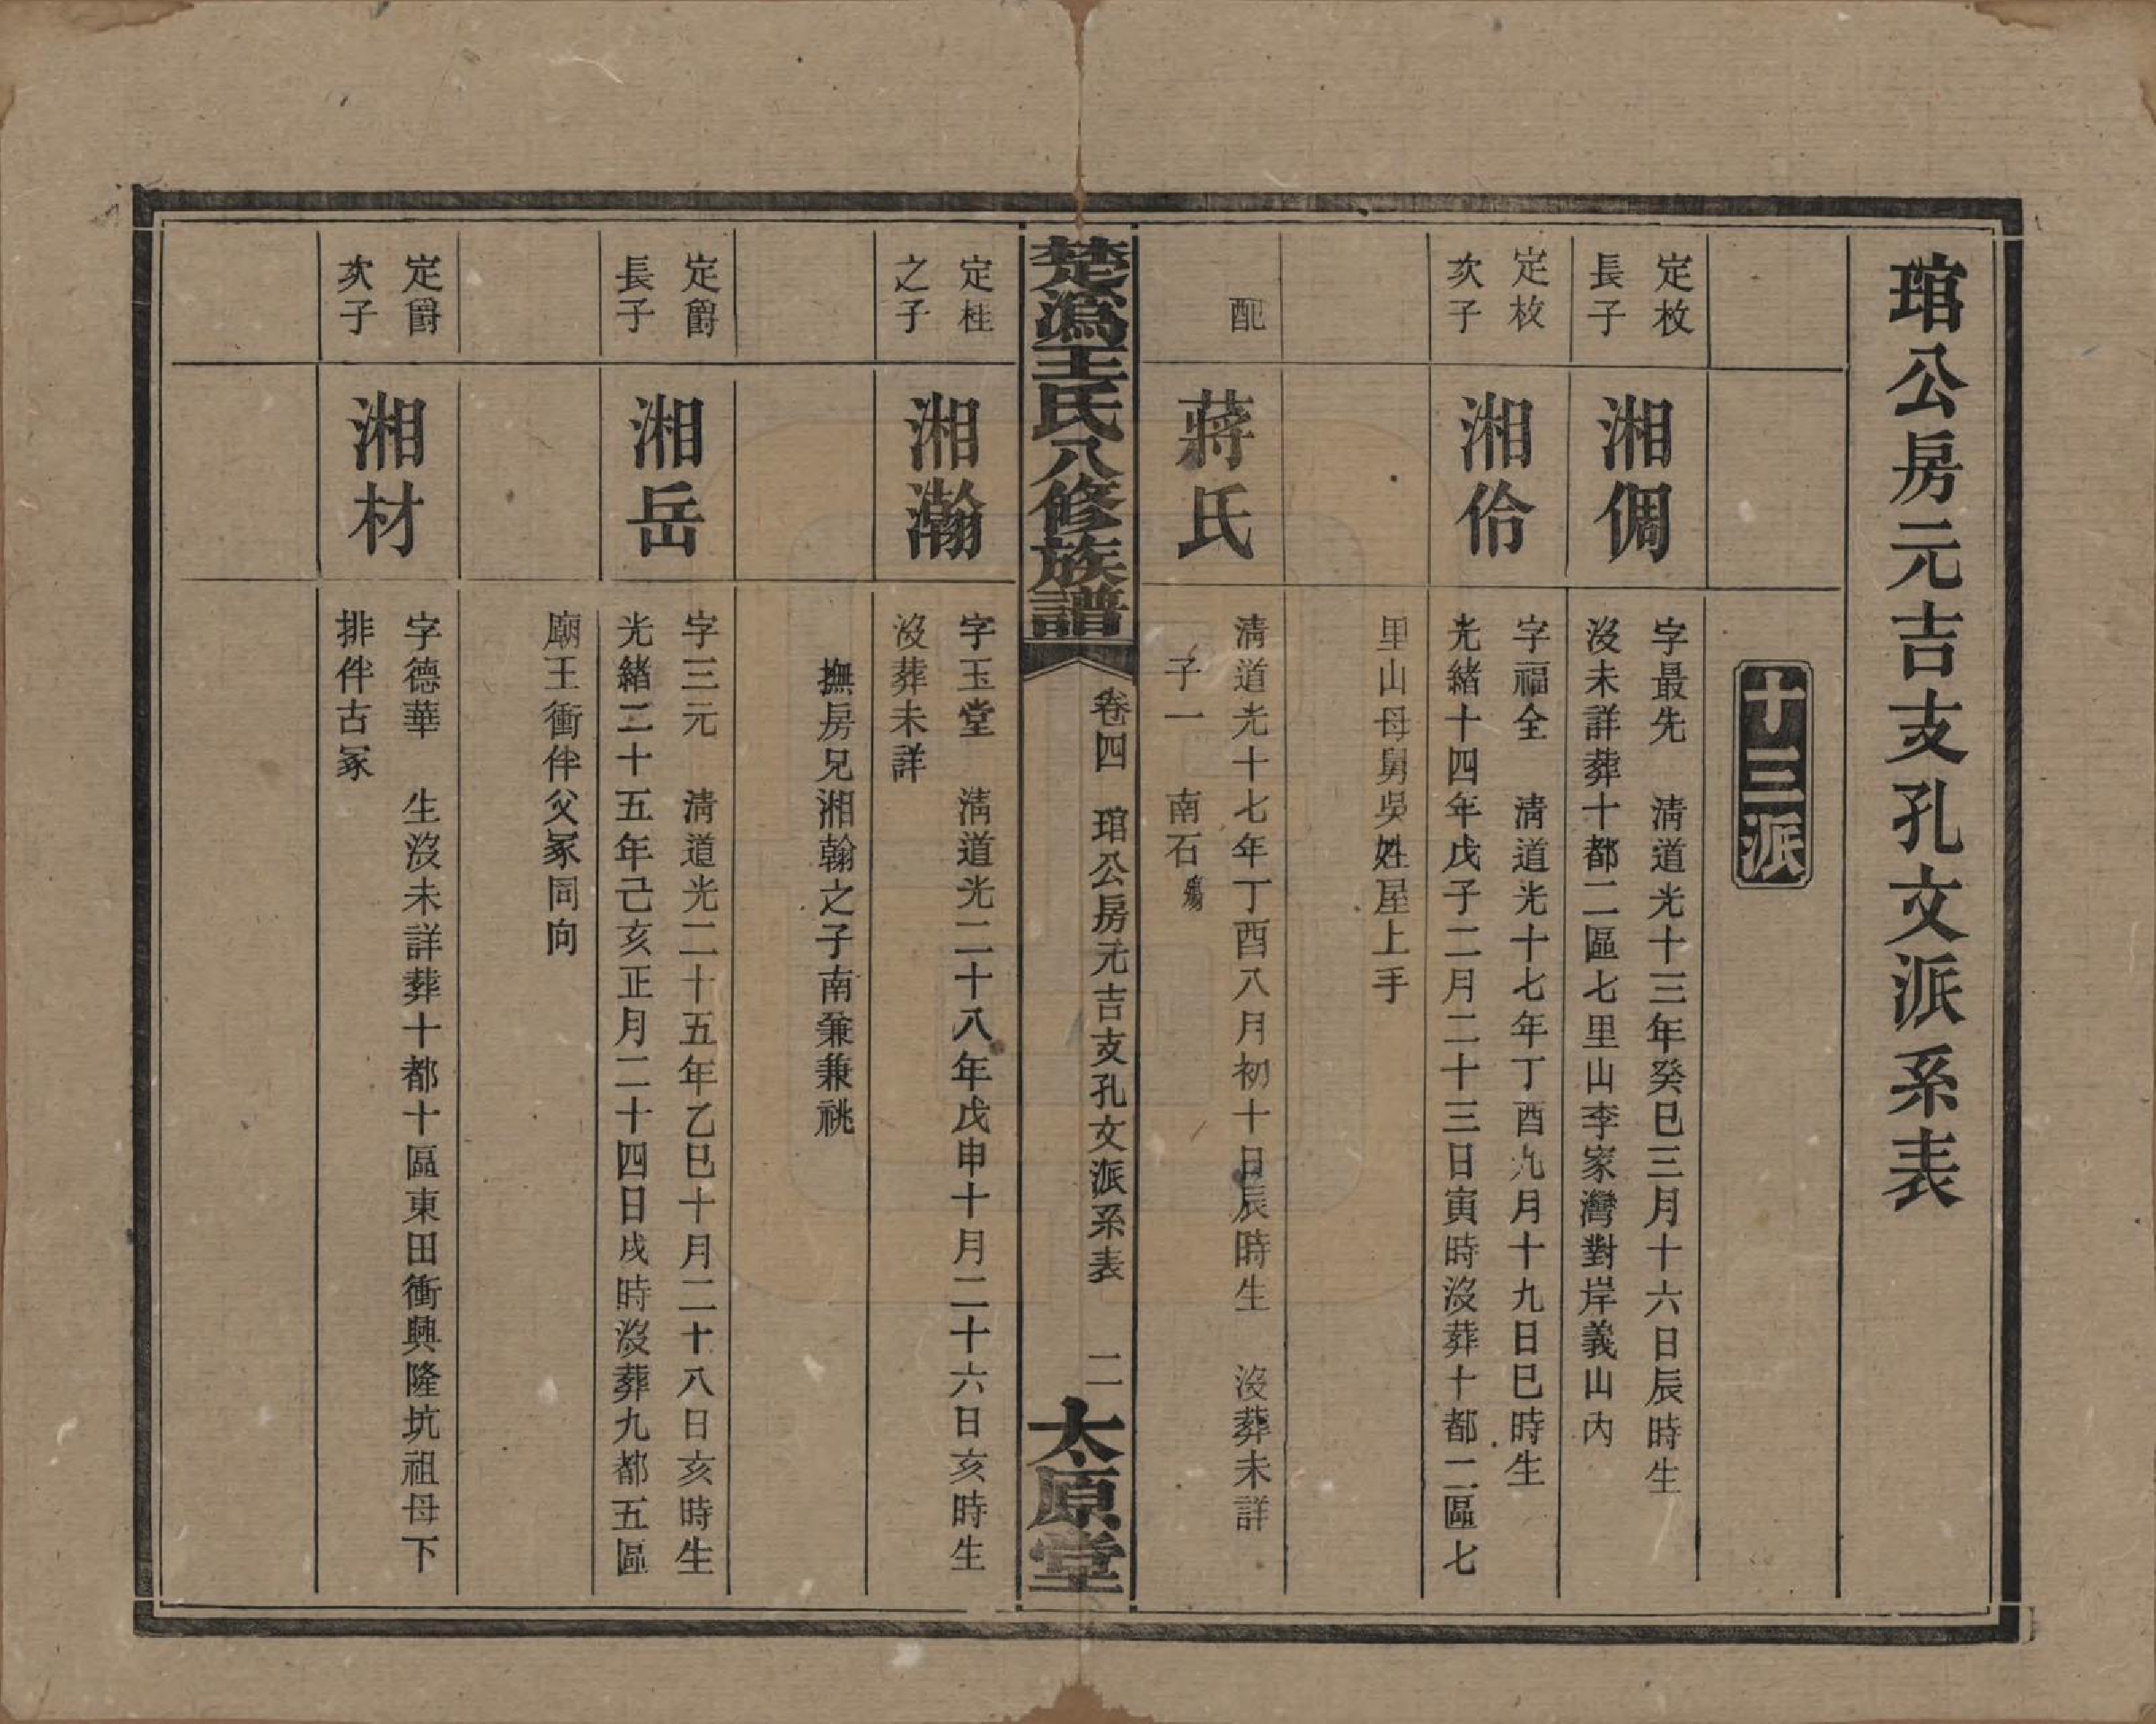 琯公房元吉支孔文派系表
十三派
定枚
長子
湘倜
字最先　清道光十三年癸巳三月十六日辰時生
沒未詳葬十都二區七里山李家灣對岸義山內
定枚
次子
湘伶
字福全　清道光十七年丁酉九月十九日巳時生
光緒十四年戊子二月二十三日寅時沒葬十都二區七
里山母舅吳姓屋上手
配
蔣氏
清道光十七年丁酉八月初十日辰時生　沒葬未詳
子一　南石殤
楚溈王氏八修族譜
卷四　琯公房元吉支孔文派系表　二
太原堂
定桂
之子
湘瀚
字玉堂　清道光二十八年戊申十月二十六日亥時生
沒葬未詳
撫房兄湘翰之子南兼兼祧
定爵
長子
湘岳
字三元　清道光二十五年乙巳十月二十八日亥時生
光緒二十五年己亥正月二十四日戌時沒葬九都五區
廟王衝伴父冢同向
定爵
次子
湘材
字德華　生沒未詳葬十都十區東田衝興隆坑祖母下
排伴古冢